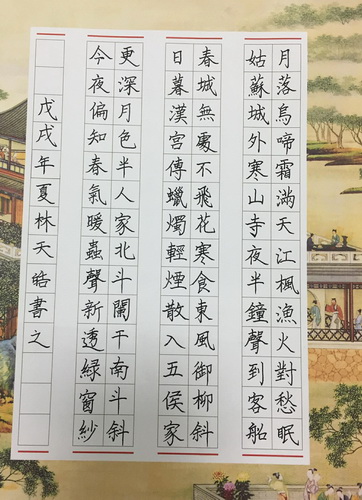 月落烏啼霜滿天江楓漁火對愁眠
姑蘇城外寒山寺夜半鐘聲到客船
春城無處不飛花寒食東風御柳斜
日暮漢宮傳蠟燭輕煙散入五侯家
更深月色半人家北斗闌干南斗斜
今夜偏知春氣暖蟲聲新透綠窗紗
戊戌年夏林天皓書之